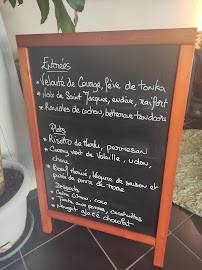 Entrées
* Velouté de Courge, fève de tonka
* Noix de Saint Jacques, endive, raifort
* Ravioles de cochon, betterave tandoori
Plats
* Risotto de , parmesan
* Curry vert de Volaille, udon,
chou
* Boeuf , légumes de saison et
purée de pomme de terre
Desserts
* Citron, coco
* Tarte aux pommes, cacahuètes
* Nougat glacé chocolat